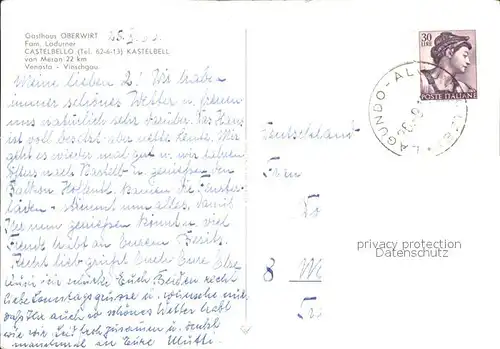 Gasthaus OBERWIRT
Fam. Ladurner
CASTELBELLO (Tel. 62-6-13) KASTELBELL
von Meran 22 km
Venosta - Vinschgau
Meine lieben 2! Wir haben
immer schönes Wetter u. freuen
uns natürlich sehr darüber. Das Haus
ist voll besetzt aber nette Leute. Mir
geht es wieder mal gut u. wir fahren
öfters nach Kastelb. u. genießen den
Balkon. Hoffentl. kamen die Fenster-
läden - stimmt nun alles, damit
Ihr nun genießen könnt u. viel
Freude habt an Eurem Besitz.
Recht lieb grüßt Euch Eure Else
Nun ich schicke Euch Beiden recht
liebe Sonntagsgrüsse u. wünsche mir
daß Ihr auch so schönes Wetter habt
wie wir. zusammen u. denkt
manchmal an Eure Mutti.
30
LIRE
POSTE ITALIANE
LAGUNDO - AL
Deutschland
8 M
privacy protection
Datenschutz